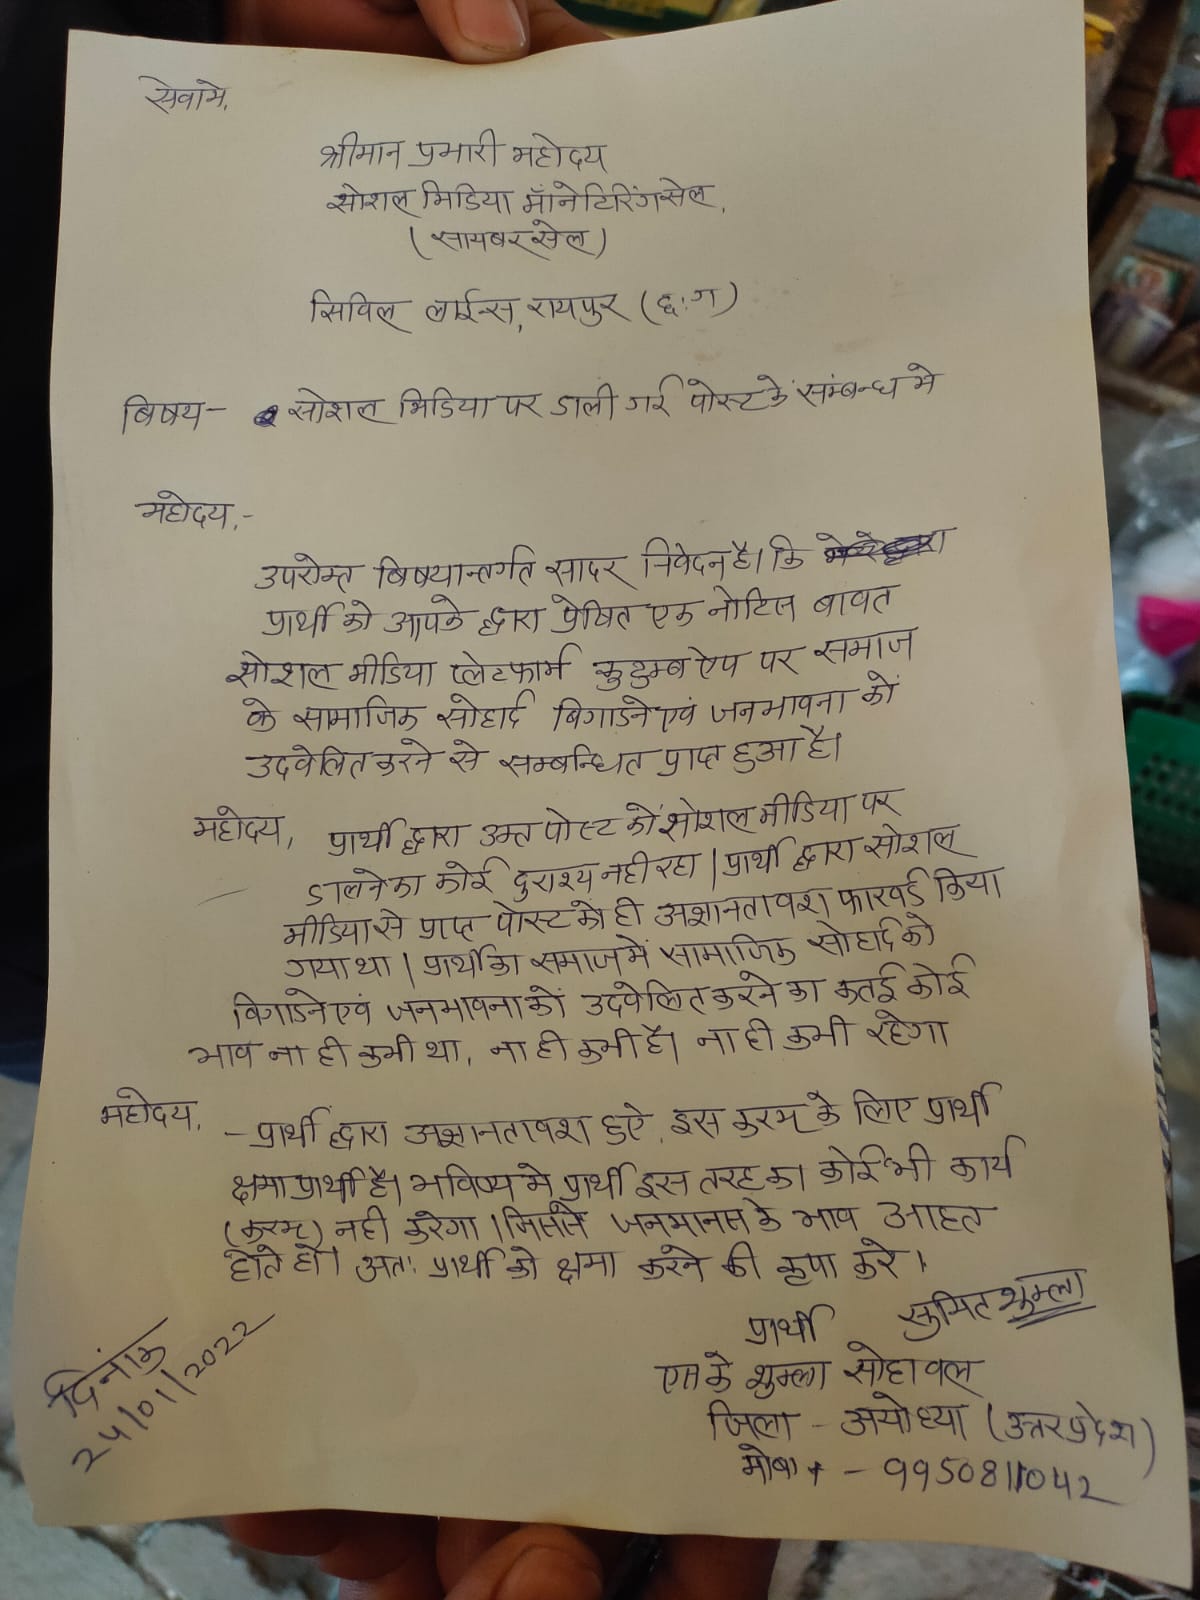 सेवामे,
श्रीमान प्रभारी महोदय
सोशल मिडिया मॉनेटिरिंग सेल,
(सायबर सेल)
सिविल लाईन्स, रायपुर (छ:ग)
बिषय- सोशल मिडिया पर डाली गई पोस्ट के संम्बन्ध मे
महोदय,-
उपरोक्त बिषयान्तर्गत सादर निवेदन है। कि
प्रार्थी को आपके द्वारा प्रेषित एक नोटिस बावत
सोशल मीडिया प्लेटफार्म कुटुम्ब ऐप पर समाज
के सामाजिक सोहार्द बिगाडने एवं जनभावना कों
उदवेलित करने से सम्बन्धित प्राप्त हुआ है।
महोदय, प्रार्थी द्वारा उक्त पोस्ट कों सोशल मीडिया पर
डालने का कोई दुराश्य नही रहा। प्रार्थी द्वारा सोशल
मीडिया से प्राप्त पोस्ट को ही अज्ञानतावश फारवर्ड किया
गया था। प्रार्थी का समाज में सामाजिक सोहार्द को
बिगाडने एवं जनभावना कों उदवेलित करने का कतई कोई
भाव ना ही कभी था, ना ही कभी है। ना ही कभी रहेगा
महोदय, - प्रार्थी द्वारा अज्ञानतावश हुऐ, इस करम के लिए प्रार्थी
क्षमा प्रार्थी है। भविष्य मे प्रार्थी इस तरह का कोई भी कार्य
(करम) नही करेगा। जिससे जनमानस के भाव आहत
होते हो। अतः प्रार्थी को क्षमा करने की कृपा करे।
प्रार्थी सुमित शुक्ला
एस के शुक्ला सोहावल
जिला - अयोध्या (उत्तर प्रदेश)
मोबा - 9950811042
दिनांक
24/01/2022